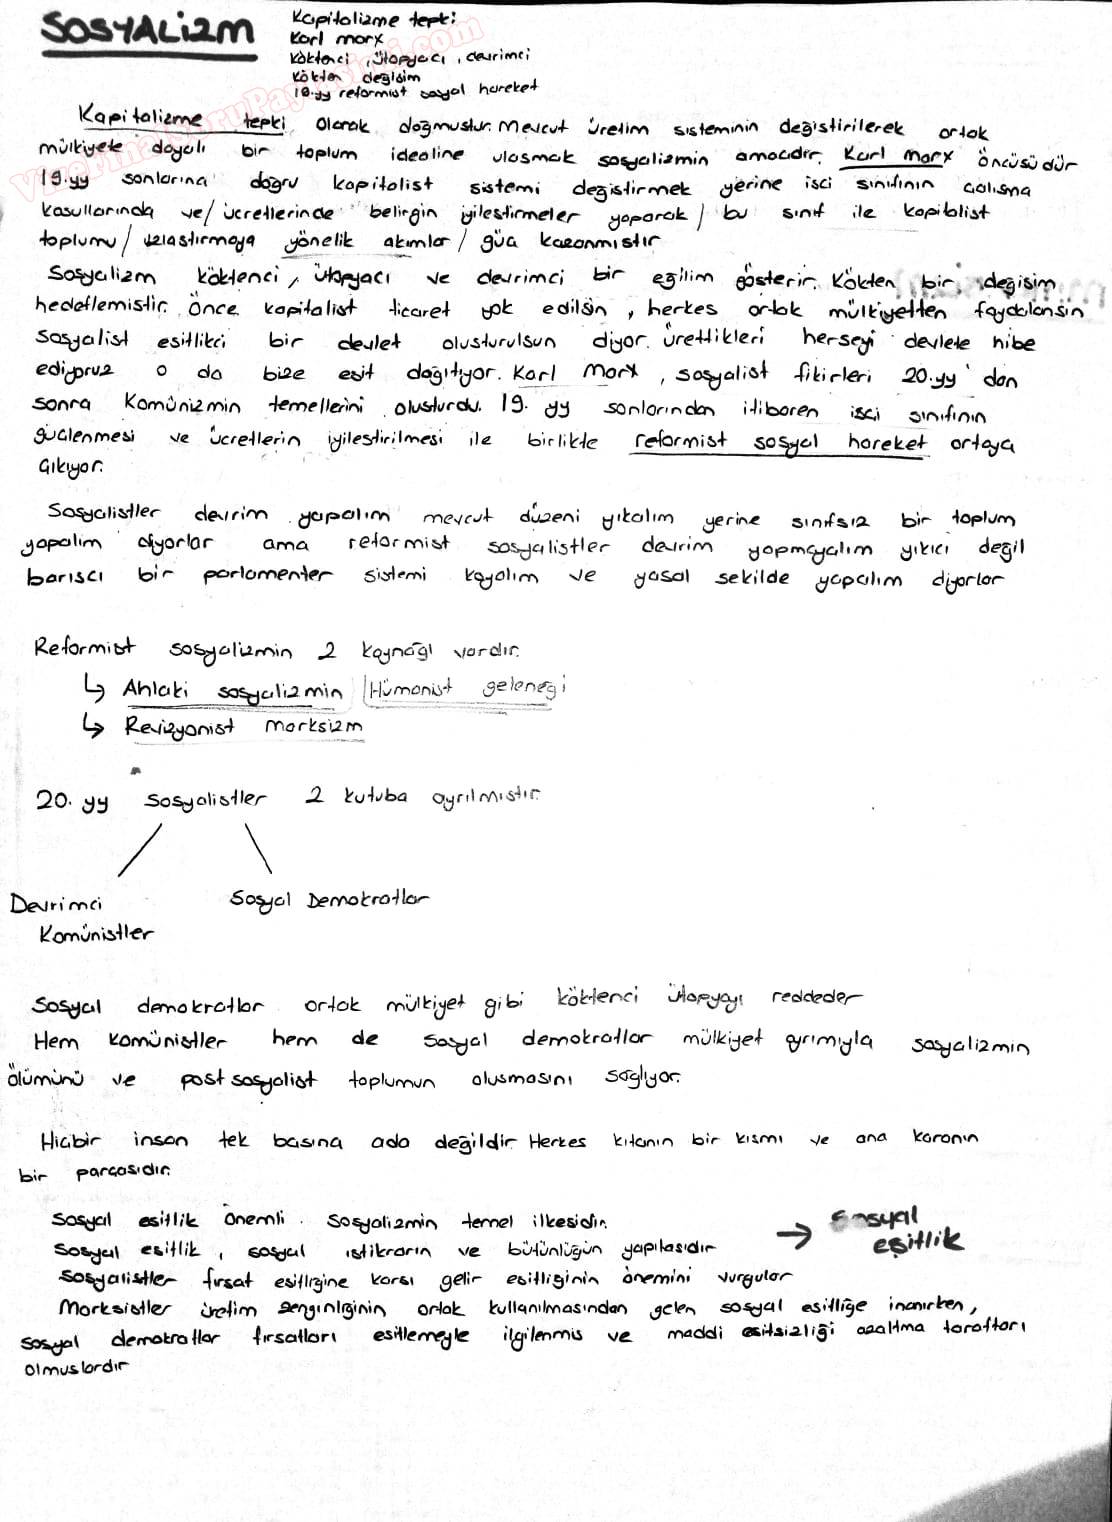 SOSYALİZM
Kapitalizme tepki
Karl marx
Köktenci, ütopyacı, devrimci
Kökten değişim
19.yy reformist sosyal hareket
Kapitalizme tepki olarak doğmustur. Mevcut üretim sisteminin değistirilerek ortak
mülkiyete dayalı bir toplum idealine ulasmak sosyalizmin amacıdır. Karl Marx öncüsüdür
19.yy sonlarına doğru kapitalist sistemi değistirmek yerine isci sınıfının calısma
kosullarında ve/ücretlerinde belirgin iyilestirmeler yaparak/ bu sınıf ile kapitalist
toplumu/ uzlastırmaya yönelik akımlar/ güc kazanmıstır
Sosyalizm köktenci, ütopyacı ve devrimci bir eğilim gösterir. Kökten bir değisim
hedeflemistir. önce kapitalist ticaret yok edilsin, herkes ortak mülkiyetten faydalansın
sosyalist esitlikci bir devlet olusturulsun diyor. ürettikleri herseyi devlete hibe
ediyoruz o da bize esit dağıtıyor. Karl Marx, sosyalist fikirleri 20.yy'dan
sonra Komünizmin temellerini olusturdu. 19.yy sonlarından itibaren isci sınıfının
güclenmesi ve ücretlerin iyilestirilmesi ile birlikte reformist sosyal hareket ortaya
cıkıyor.
Sosyalistler devrim yapalım mevcut düzeni yıkalım yerine sınıfsız bir toplum
yapalım diyorlar ama reformist sosyalistler devrim yapmayalım yıkıcı değil
barıscı bir parlamenter sistemi koyalım ve yasal sekilde yapalım diyorlar
Reformist sosyalizmin 2 kaynağı vardır.
↳ Ahlaki sosyalizmin Hümanist geleneği
↳ Revizyonist marksizm
20.yy sosyalistler 2 kutuba ayrılmıstır.
Devrimci Sosyal Demokratlar
Komünistler
Sosyal demokratlar ortak mülkiyet gibi köktenci ütopyayı reddeder
Hem komünistler hem de sosyal demokratlar mülkiyet ayrımıyla sosyalizmin
ölümünü ve post sosyalist toplumun olusmasını sağlıyor.
Hicbir insan tek basına ada değildir. Herkes kıtanın bir kısmı ve ana karanın
bir parcasıdır.
Sosyal esitlik önemli. Sosyalizmin temel ilkesidir. → Sosyal
eşitlik
Sosyal esitlik, sosyal istikrarın ve bütünlüğün yapıtasıdır
Sosyalistler fırsat esitliğine karsı gelir esitliğinin önemini vurgular
Marksistler üretim zenginliğinin ortak kullanılmasından gelen sosyal esitliğe inanırken,
sosyal demokratlar fırsatları esitlemeyle ilgilenmis ve maddi esitsizliği azaltma taraftarı
olmuslardır